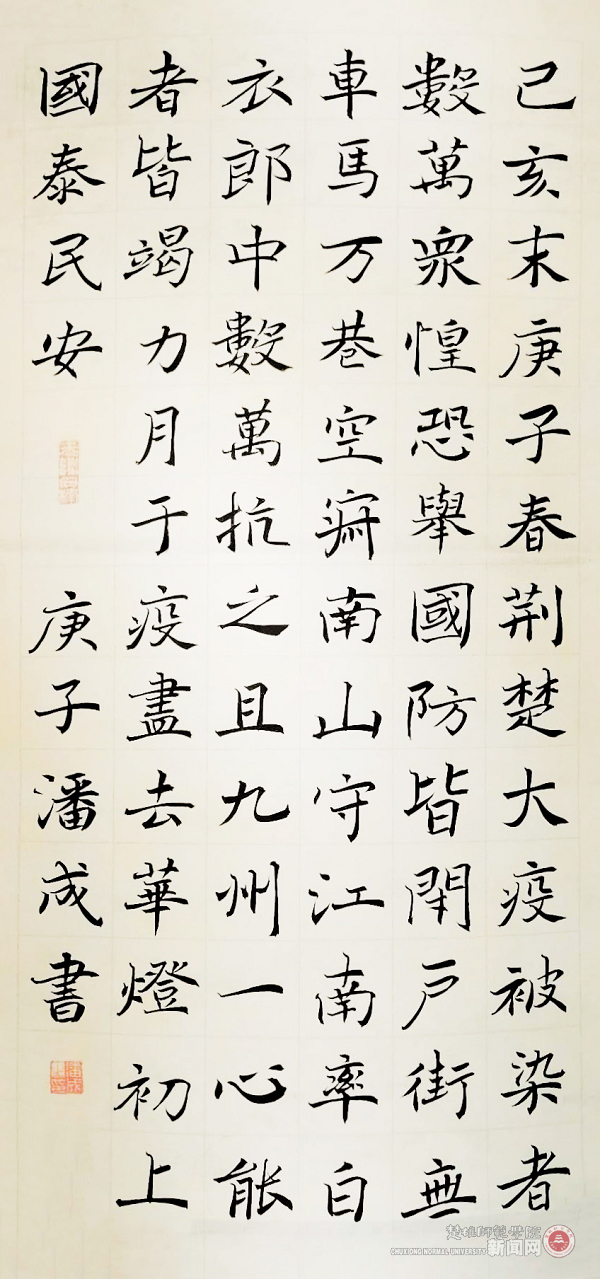 己亥末庚子春荆楚大疫被染者
數萬衆惶恐舉國防皆閈戸街無
車馬万巷空窾南山守江南率白
衣郎中數萬抗之且九州一心能
者皆竭力月于疫盡去華燈初上
國泰民安
庚子潘成書
楚雄師範學院
CHUXIONG NORMAL UNIVERSITY
新闻网